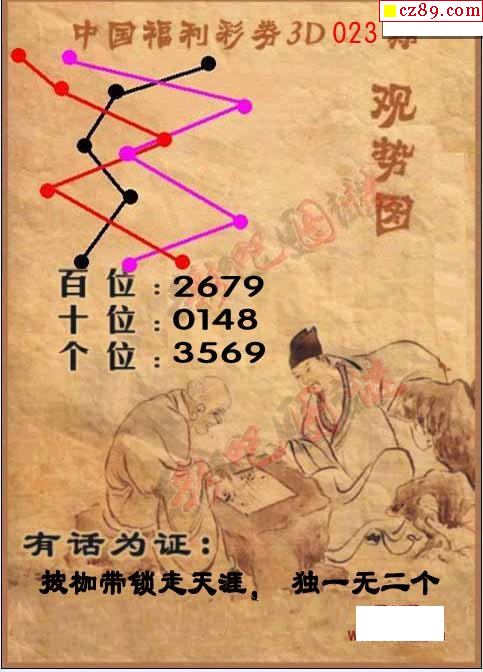 cz89.com
中国福利彩券3D 023期
观势图
百位:2679
十位:0148
个位:3569
彩吧图谜
彩吧图谜
有话为证:
披枷带锁走天涯, 独一无二个